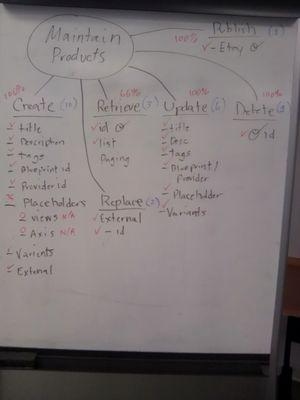 Maintain
Products
Publish (1)
100%
✓ - Etsy ✓
100%
Create (10)
✓ title
✓ Description
✓ tags
✓ Blueprint id
✓ Provider id
Placeholders
2 views N/A
2 Axis N/A
✓ Variants
✓ External
66%
Retrieve (3)
✓ id ✓
✓ list
Paging
Replace (2)
✓ External
✓ - id
100%
Update (6)
✓ title
✓ Desc
✓ tags
✓ Blueprint/
Provider
✓ Placeholder
✓ Variants
100%
Delete
✓ id